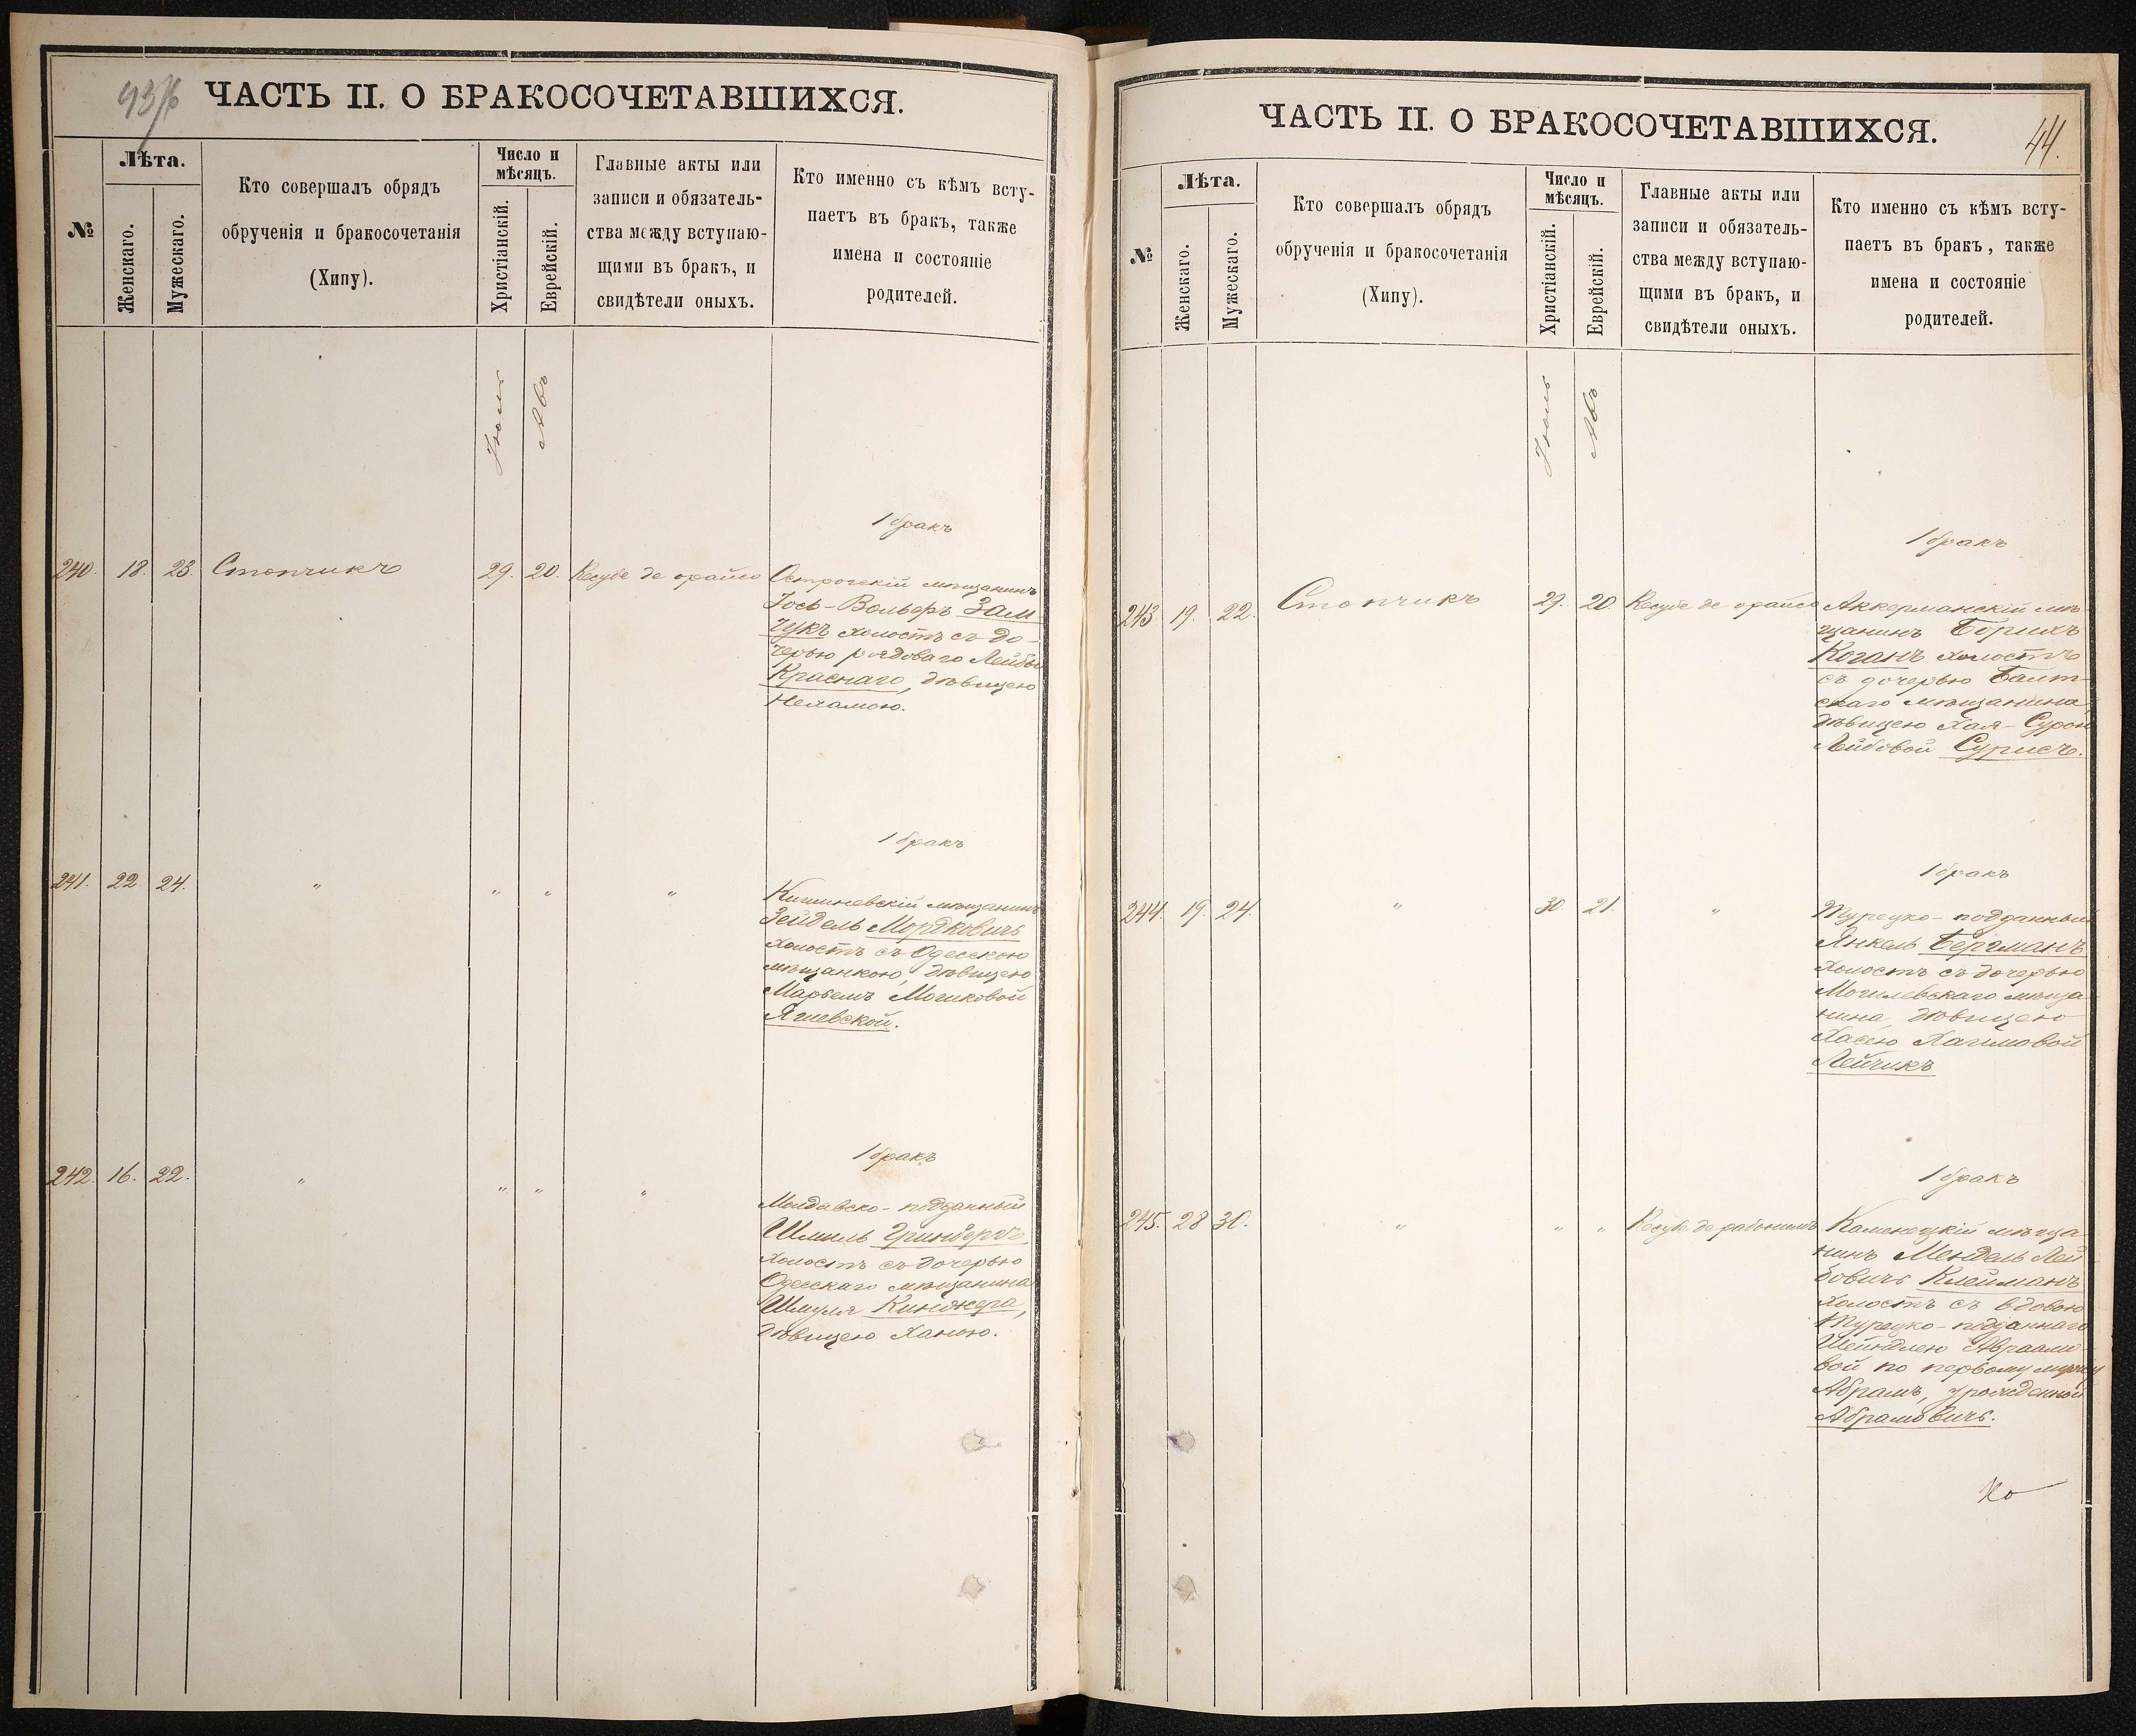 93/6
ЧАСТЬ II. О БРАКОСОЧЕТАВШИХСЯ.
№
Лѣта.
Женскаго.
Мужескаго.
Кто совершалъ обрядъ
обрученія и бракосочетанія
(Хипу).
Число и
мѣсяцъ.
Христіанскій.
Еврейскій.
Главные акты или
записи и обязатель-
ства между вступаю-
щими въ бракъ, и
свидѣтели оныхъ.
Кто именно съ кѣмъ всту-
паетъ въ бракъ, также
имена и состояніе
родителей.
Іюль
Авъ
1 бракъ
240. 18. 23. Стопчикъ 29. 20. Кесубе де орайсо
Острогскій мѣщанинъ
Іось-Вольфъ Зам-
чукъ холостъ съ до-
черью рядоваго Лейбы
Краснаго, дѣвицею
Нехамою.
1 бракъ
241. 22 24. " " " "
Кишиневскій мѣщанинъ
Зейдель Мордковичъ
холостъ съ Одесскою
мѣщанкою, дѣвицею
Марьемъ Мошковой
Ягиевской.
1 бракъ
242. 16. 22. " " " "
Молдавско-подданный
Шмиль Гринбергъ
холостъ съ дочерью
Одесскаго мѣщанина
Шмуля Кинжера,
дѣвицею Ханою.
ЧАСТЬ II. О БРАКОСОЧЕТАВШИХСЯ.
44.
№
Лѣта.
Женскаго.
Мужескаго.
Кто совершалъ обрядъ
обрученія и бракосочетанія
(Хипу).
Число и
мѣсяцъ.
Христіанскій.
Еврейскій.
Главные акты или
записи и обязатель-
ства между вступаю-
щими въ бракъ, и
свидѣтели оныхъ.
Кто именно съ кѣмъ всту-
паетъ въ бракъ, также
имена и состояніе
родителей.
Іюль
Авъ
1 бракъ
243 19. 22. Стопчикъ 29. 20. Кесубе де орайсо
Аккерманскій мѣ-
щанинъ Борихъ
Коганъ холостъ
съ дочерью Балт-
скаго мѣщанина,
дѣвицею Хая-Сурою
Лейбовой Сурисъ.
1 бракъ
244. 19. 24. " 30 21. "
Турецко-подданный
Янкель Бергманъ
холостъ съ дочерью
Могилевскаго мѣща-
нина, дѣвицею
Хасею Хаимовой
Лейчикъ
1 бракъ
245. 28 30. " " " Кесубе де рабонимъ
Каменецкій мѣща-
нинъ Мендель Лей-
бовичъ Клейманъ
холостъ съ вдовою
Турецко-подданнаго
Шейндлею Авраамо-
вой по первому мужу
Абрамъ, урожденной
Абрамовичъ.